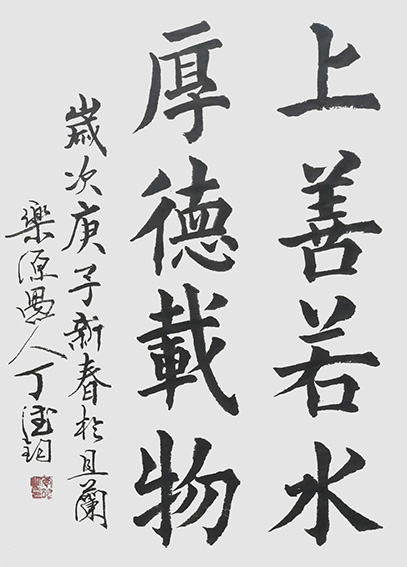 上善若水
厚德載物
歲次庚子新春於且蘭
樂源愚人丁